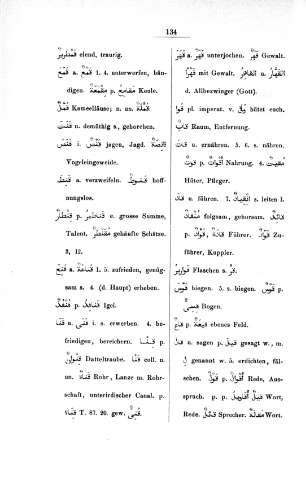 134
قَمْطَرِيرٌ elend, traurig.
قَمَعَ a. قَمْعٌ l. 4. unterworfen, bän-
digen. مِقْمَعَةٌ p. مَقَامِعُ Keule.
قُمَّلٌ Kameelläuse; n. us. قُمَّلَةٌ
قَنَتَ u. demüthig s., gehorchen.
قَنَصَ i. قَنْصٌ jagen, Jagd.
Vogeleingeweide.
قَنَطَ a. verzweifeln. قَنُوطٌ hoff-
nungslos.
قِنْطَارٌ p. قَنَاطِيرُ u. grosse Summe,
Talent. مُقَنْطَرٌ gehäufte Schätze.
3, 12.
قَنِعَ a. قَنَاعَةٌ l. 5. zufrieden, genüg-
sam s. 4. (d. Haupt) erheben.
قُنْفُذٌ p. قَنَافِذُ Igel.
قَنَا i. s. erwerben. 4. be-
friedigen, bereichern.
Datteltraube. coll. u.
us. قَنَاةٌ Rohr, Lanze m. Rohr-
schaft, unterirdischer Canal. p.
T. 87. 20. gew.
قَهَرَ a. قَهْرٌ unterjochen. قَهْرٌ Gewalt.
قَهْرًا mit Gewalt. القَاهِرُ u. القَهَّارُ
d. Allbezwinger (Gott).
قُوا pl. imperat. v. hütet euch.
قَابٌ Raum, Entfernung.
قَاتَ u. ernähren. 5. 6. s. nähren
قُوتٌ p. أَقْوَاتٌ Nahrung. 4. مُقِيتٌ
Hüter, Pfleger.
قَادَ u. führen. 7. اِنْقِيَادٌ s. leiten l.
مُنْقَادٌ folgsam, gehorsam.
p. قُوَّادٌ, قَادَةٌ Führer. قَوَّادٌ Zu-
führer, Kuppler.
قَوَارِيرُ Flaschen s.
قَوِسَ biegen. 5. s. biegen. قَوْسٌ p.
قِسِيٌّ Bogen.
قَاعٌ p. قِيعٌ ebenes Feld.
قَالَ u. sagen p. قِيلَ gesagt w., m.
J genannt w. 5. erdichten, fäl-
schen. قَوْلٌ p. أَقْوَالٌ Rede, Aus-
spruch. p. p. أَقَاوِيلُ قِيلٌ Wort,
Rede. قَائِلٌ Sprecher. مَقَالَةٌ Wort,